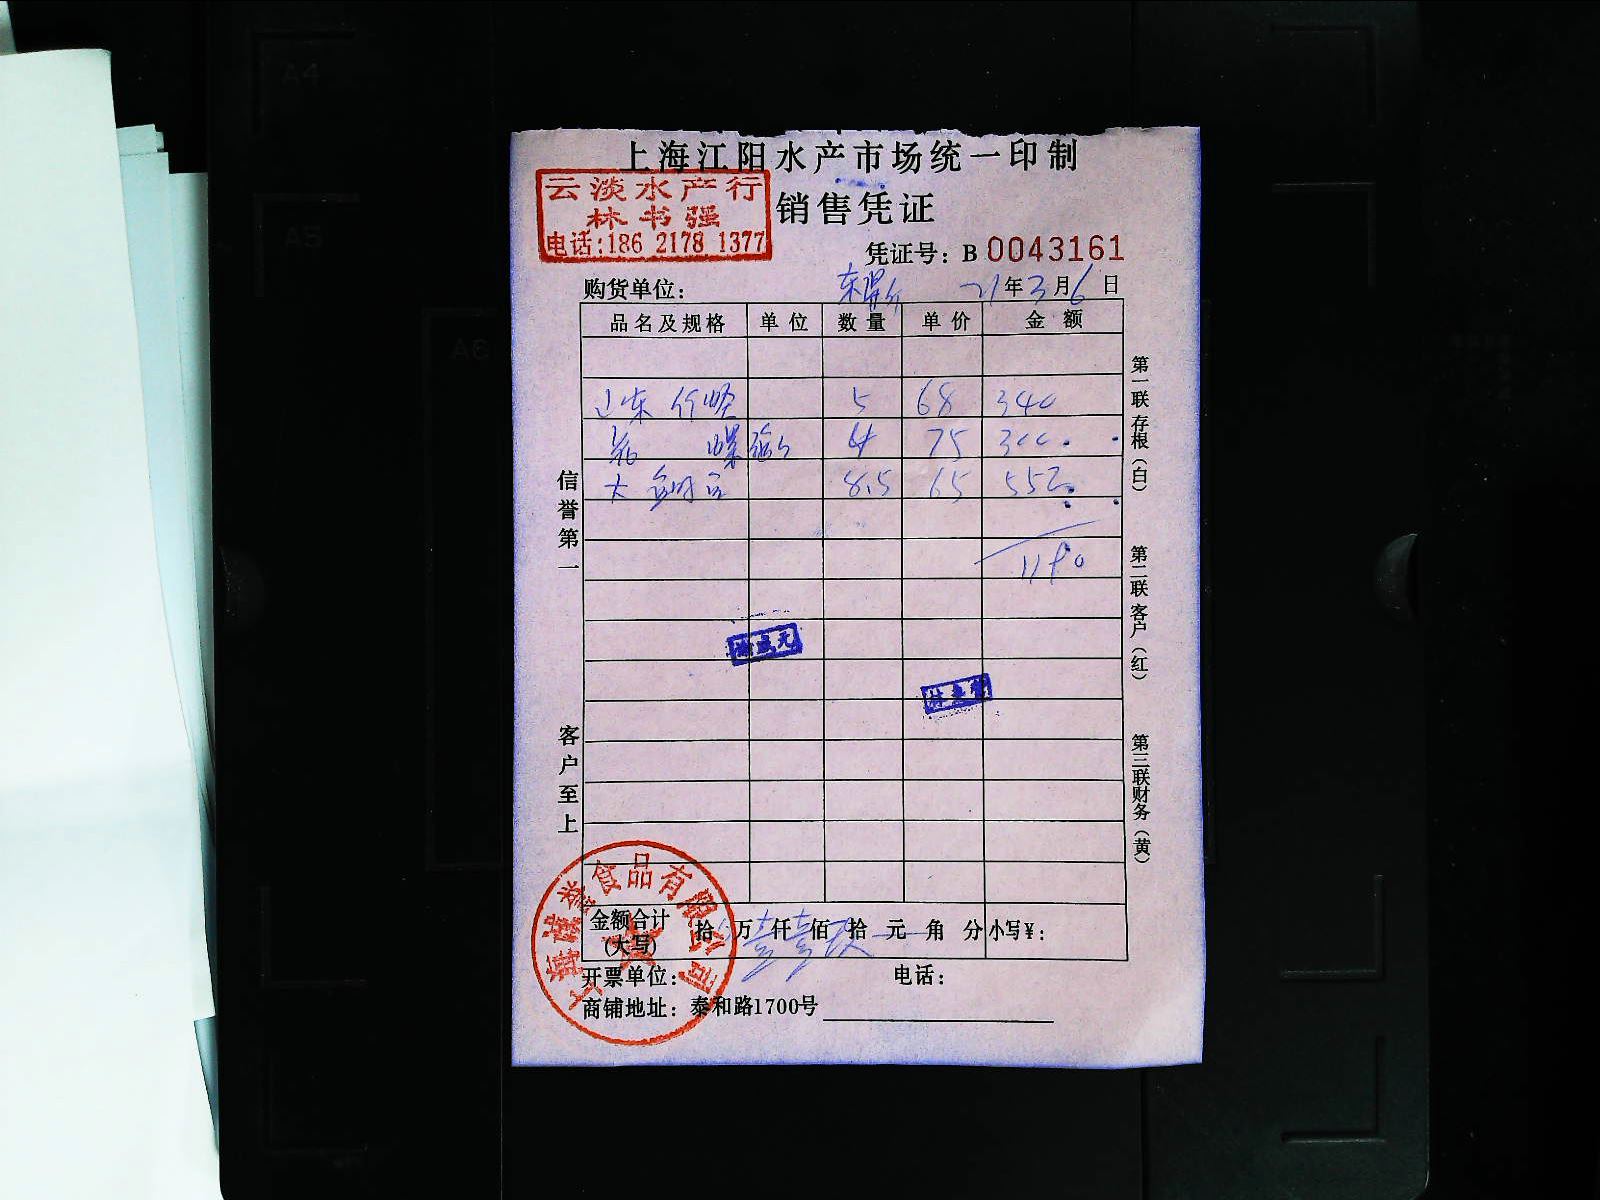 上海江阳水产市场统一印制
云淡水产行
林书强
电话:186 2178 1377
销售凭证
凭证号: B 0043161
购货单位: 21年3月6日
品名及规格 单位 数量 单价 金额
5 68 340
4 75 300.
大 8.5 65 552.
1190
信誉第一
客户至上
第一联存根(白)
第二联客户(红)
第三联财务(黄)
金额合计(大写) 拾 万 仟 佰 拾 元 角 分 小写¥:
壹 壹 玖
开票单位: 电话:
商铺地址: 泰和路1700号
食品有限公司
A4
A5